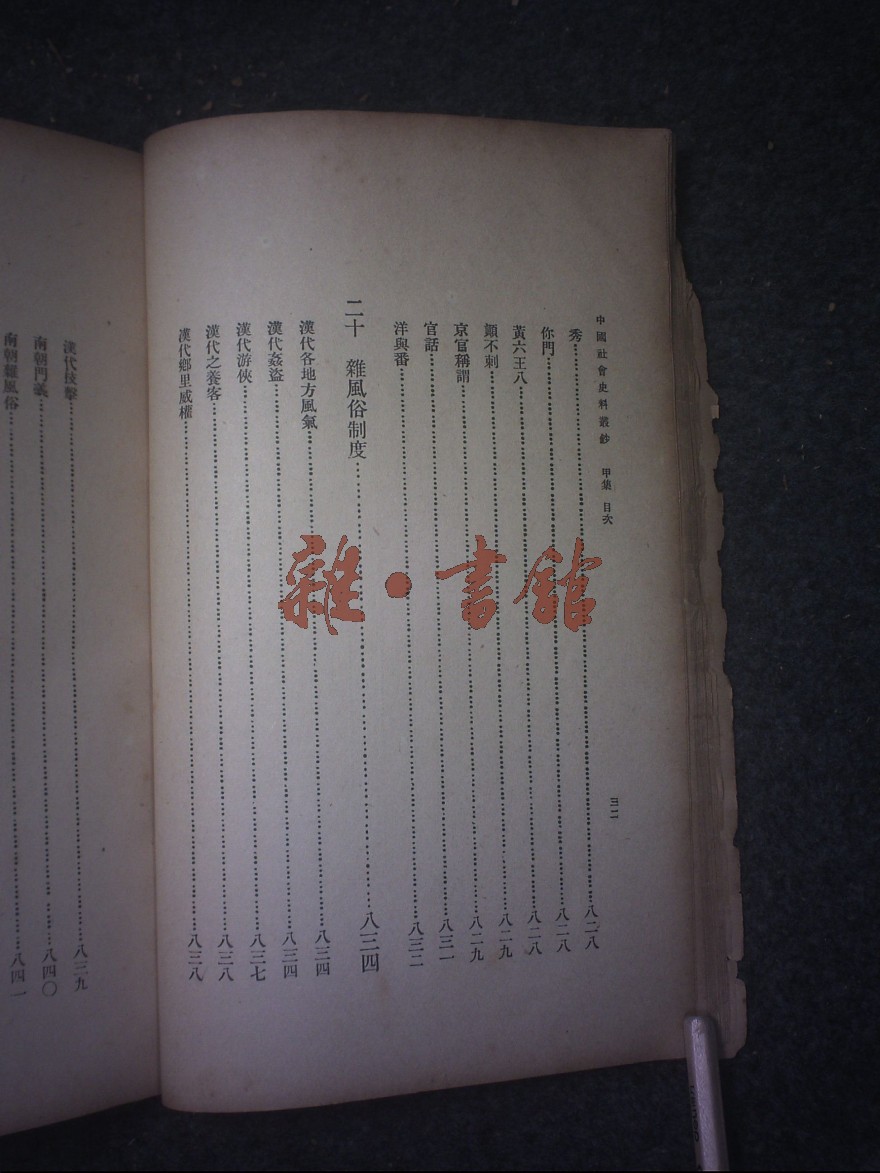 中國社會史料叢鈔 甲集 目次
三二
秀……八二八
你門……八二八
黃六王八……八二八
顋不剌……八二九
京官稱謂……八二九
官話……八三一
洋與番……八三二
二十 雜風俗制度……八三四
漢代各地方風氣……八三四
漢代姦盜……八三四
漢代游俠……八三七
漢代之養客……八三八
漢代鄉里威權……八三八
漢代技擊……八三九
南朝門義……八四〇
南朝雜風俗……八四一
雜·書館